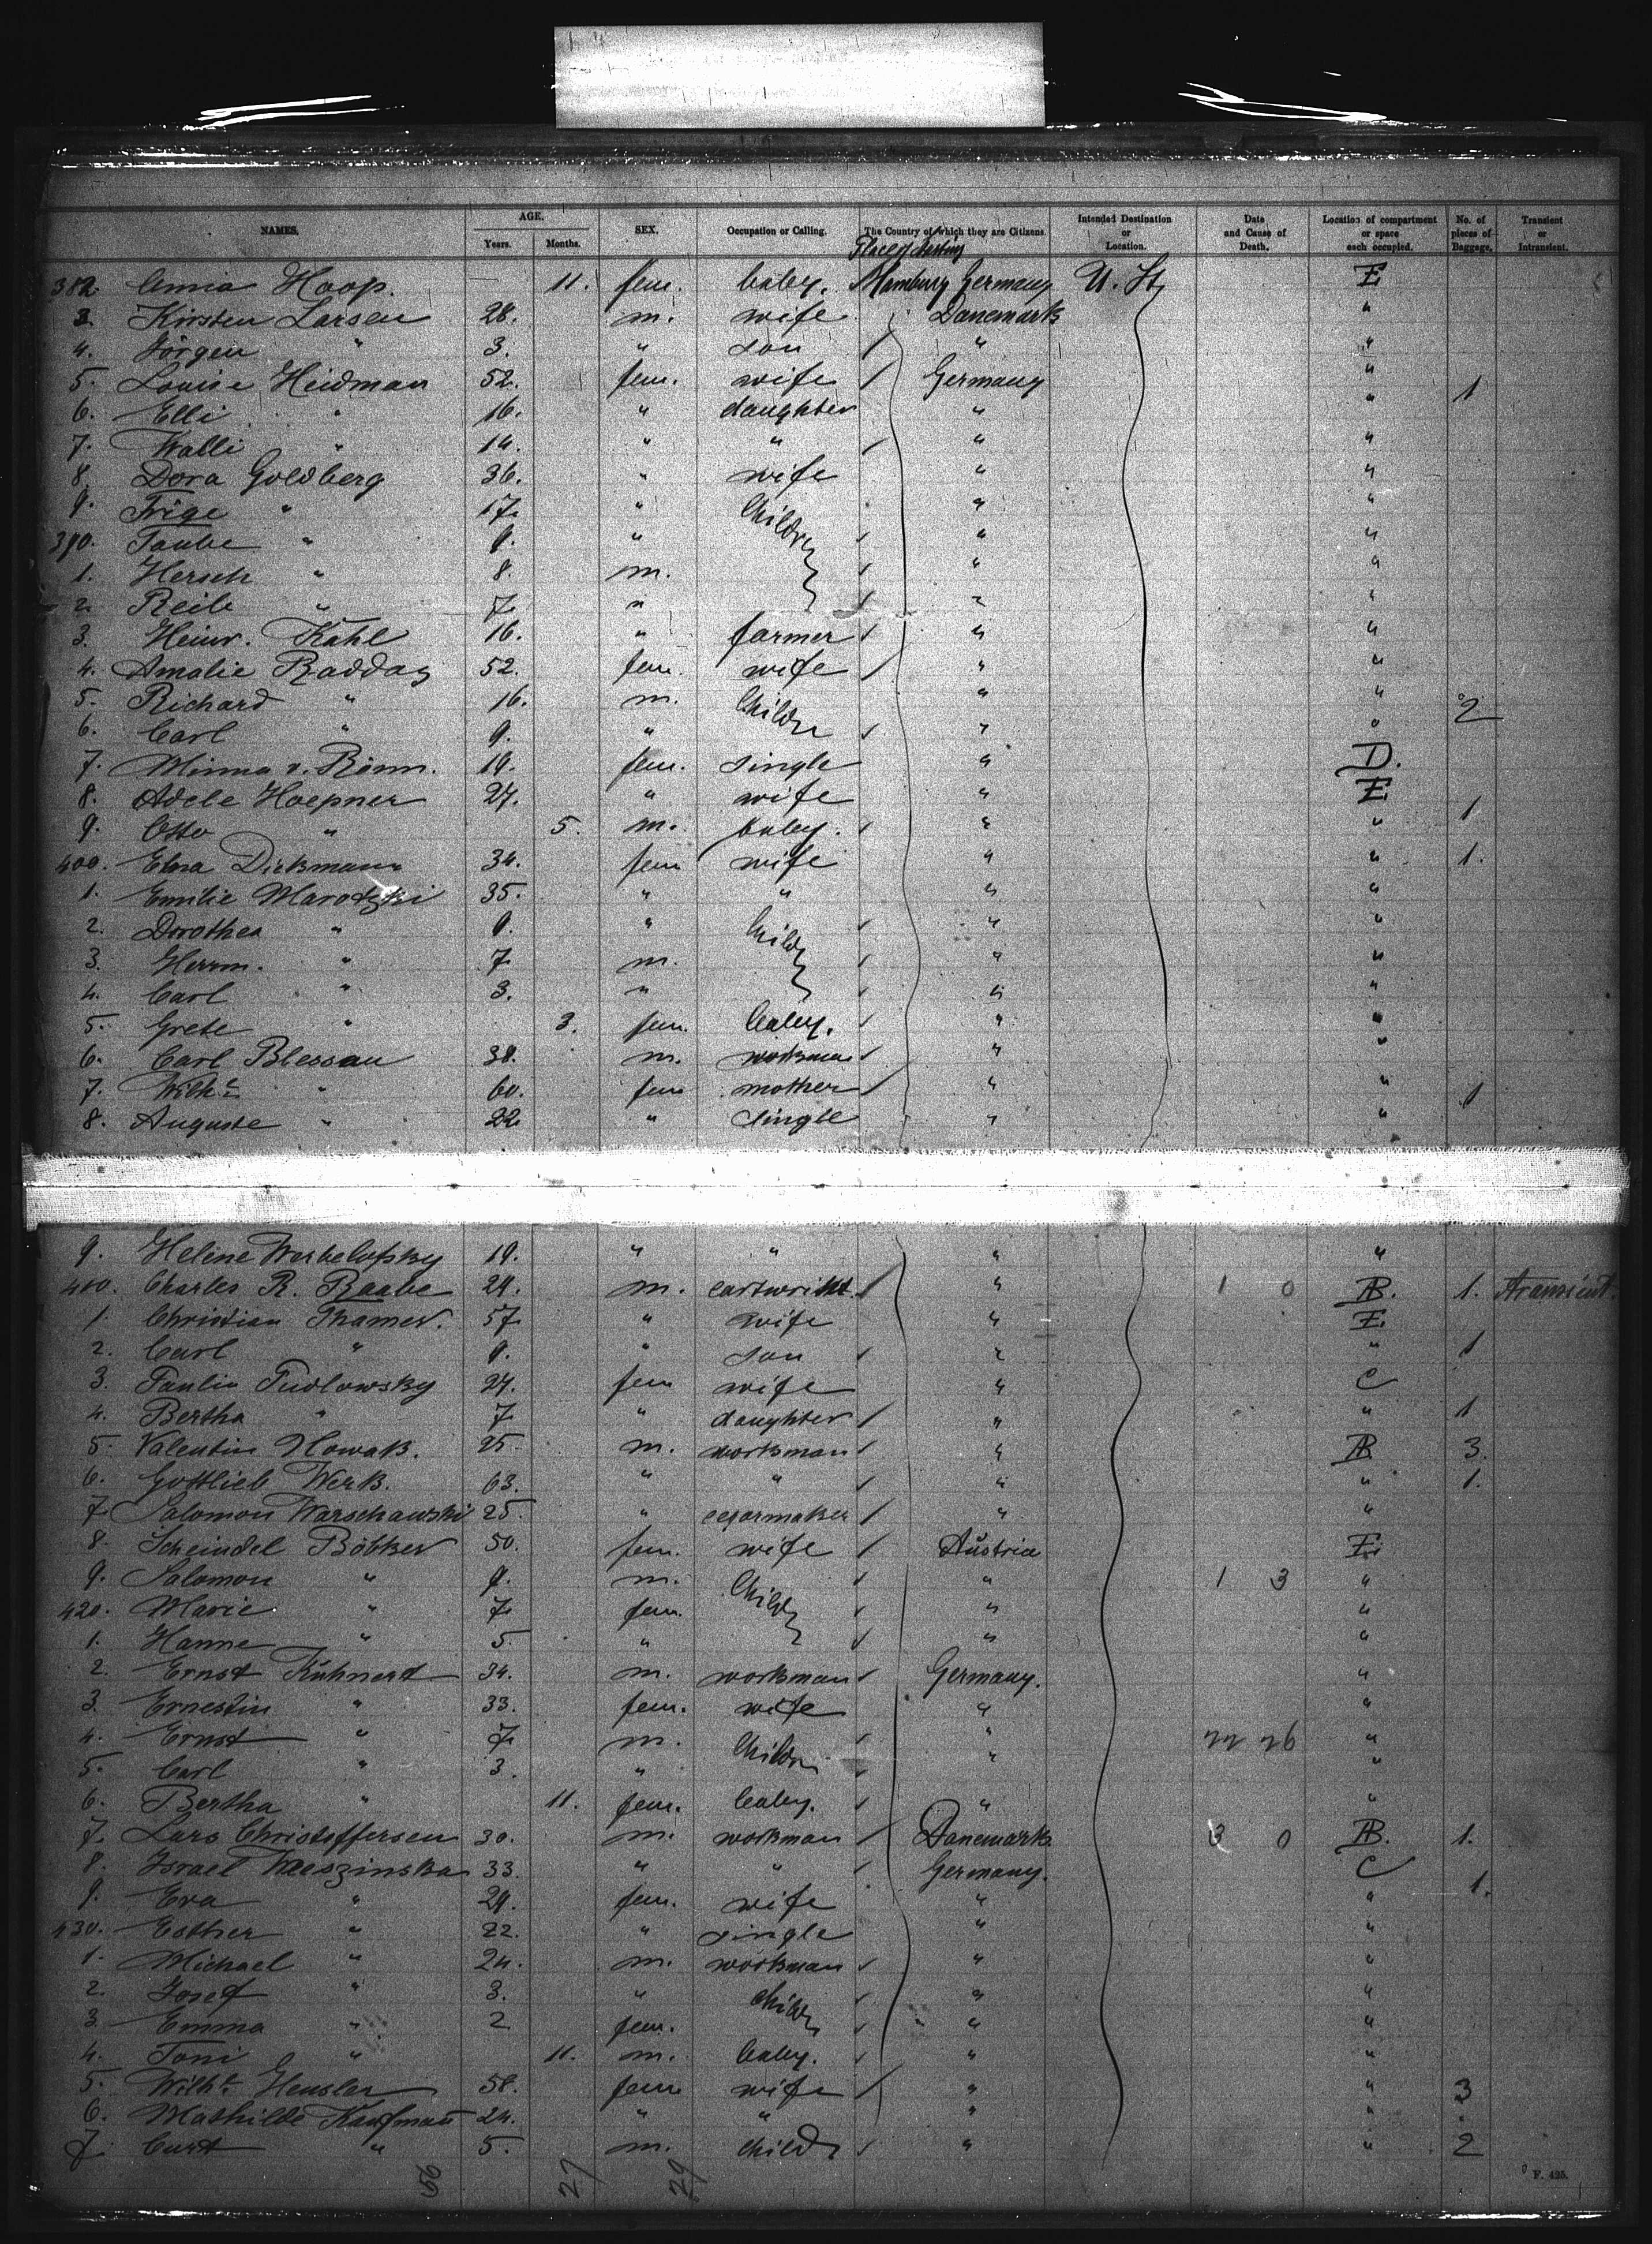 NAMES. AGE. Years. Months. SEX. Occupation or Calling. The Country of which they are Citizens. Intended Destination or Location. Date and Cause of Death. Location of compartment or space each occupied. No. of pieces of Baggage. Transient or Intransient.
382. Annia Hoop. 11. fem. baby. Hamburg Germany U. St. E
3. Kirsten Larsen 28. m. wife Danemark "
4. Jörgen " 3. " son " "
5. Louise Heidman 52. fem. wife Germany " 1
6. Elli " 16. " daughter " "
7. Walli " 14. " " " "
8. Dora Goldberg 36. " wife " "
9. Frige " 17. " Childr " "
390. Taube " 9. " " "
1. Hersch " 8. m. " "
2. Reile " 7. " " "
3. Heinr. Kahl 16. " farmer " "
4. Amalie Raddaz 52. fem. wife " "
5. Richard " 16. m. Childr " " 2
6. Carl " 9. " " "
7. Minna v. Rönn. 19. fem. single " D.
8. Adele Hoepner 27. " wife " E
9. Otto " 5. m. baby. " " 1
400. Elma Dickmann 34. fem wife " " 1.
1. Emilie Marotzki 35. " " " "
2. Dorothea " 9. " Childr " "
3. Herrm. " 7. m. " "
4. Carl " 3. " " "
5. Grete " 3. fem. baby. " "
6. Carl Blessau 38. m. workman " "
7. Wilhe " 60. fem mother " " 1
8. Auguste " 22. " single " "
9. Helene Werbelofsky 19. " " " "
410. Charles R. Raabe 29. m. cartwriht " 1 0 AB. 1. Transient.
1. Christian Thamer. 57. " wife " E.
2. Carl " 9. " son " " 1
3. Paulin Tudlowsky 27. fem wife " C
4. Bertha " 7. " daughter " " 1
5. Valentin Nowak. 25. m. workman " AB 3.
6. Gottlieb Werk. 63. " " " " 1.
7. Salomon Warschawski 25. " cegarmaker " "
8. Scheindel Bötker 50. fem. wife Austria E.
9. Salomon " 9. m. Childr " 1 3 "
420. Marie " 7. fem. " "
1. Hanne " 5. " " "
2. Ernst Kühnert 34. m. workman Germany. "
3. Ernestin " 33. fem. wife " "
4. Ernst " 7. m. Childr " 22 26 "
5. Carl " 3. " " "
6. Bertha " 11. fem. baby. " "
7. Lars Christoffersen 30. m. workman Danemark 3 0 AB. 1.
8. Israel 33. " " Germany. C
9. Eva " 29. fem. wife " " 1.
430. Esther " 22. " single " "
1. Michael " 24. m. workman " "
2. Josef " 3. " Childr " "
3. Emma " 2 fem. " "
4. Toni " 11. m. baby. " "
5. Wilhe Hensler 58. fem wife " " 3
6. Mathilde Kaufman 24. " " " "
7. Curt " 5. m. child " " 2
56 27 29
F. 425.